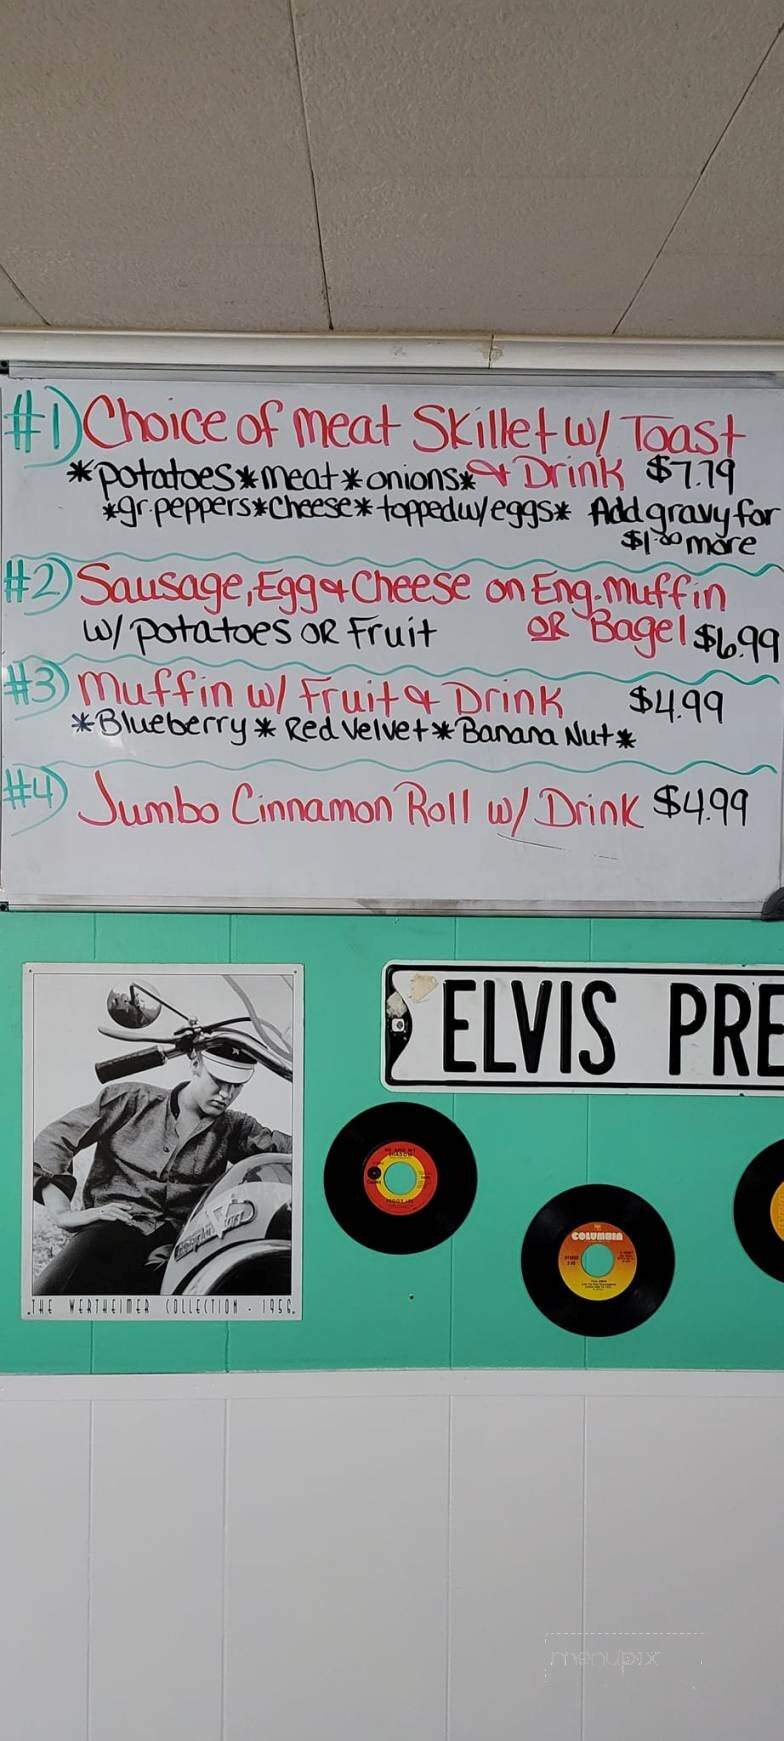 #1) Choice of Meat Skillet w/ Toast
*potatoes*meat*onions* & Drink $7.79
*gr.peppers*cheese*topped w/eggs* Add gravy for
$1.00 more
#2) Sausage, Egg & Cheese on Eng. Muffin
w/ Potatoes OR Fruit OR Bagel $6.99
#3) Muffin w/ Fruit & Drink $4.99
*Blueberry*Red Velvet*Banana Nut*
#4) Jumbo Cinnamon Roll w/ Drink $4.99
ELVIS PRE
COLUMBIA
THE WERTHEIMER COLLECTION - 1956
menupix